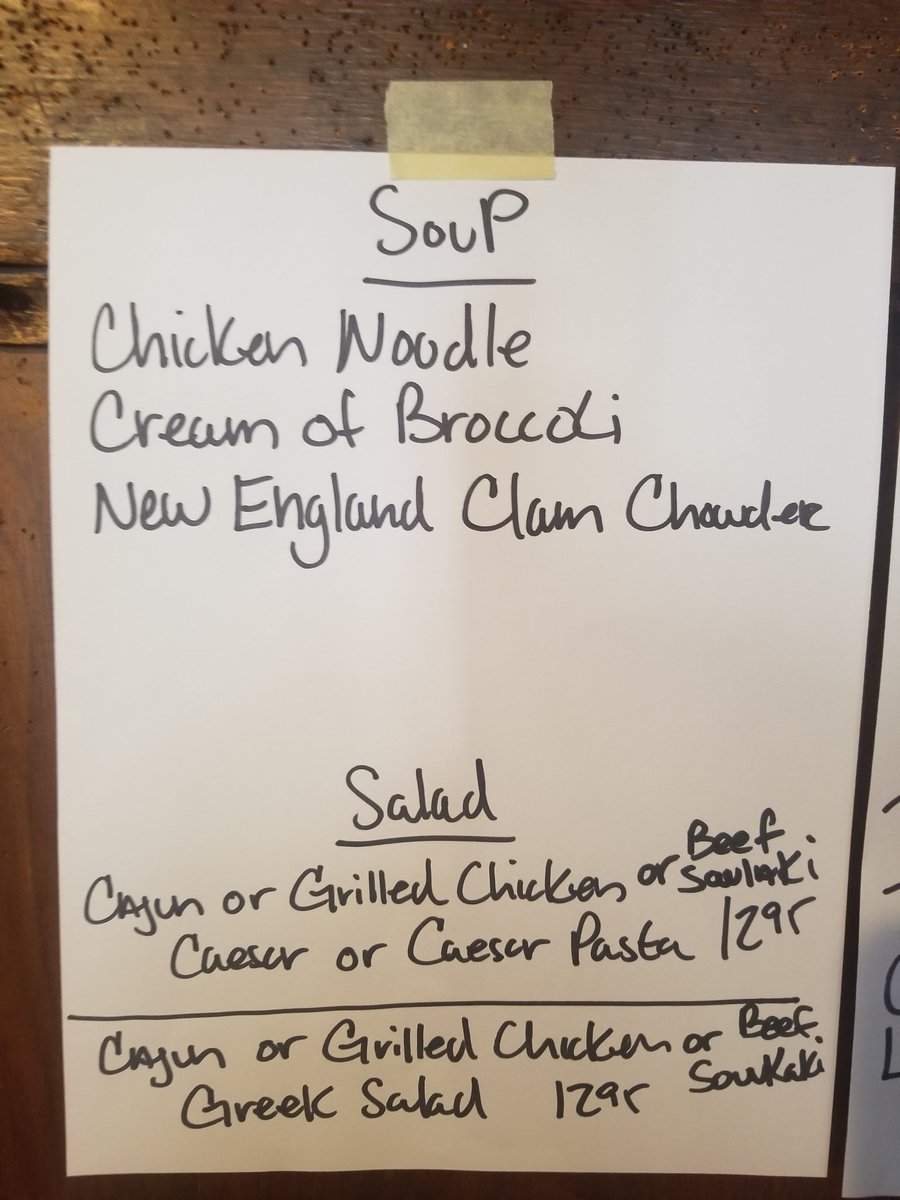 Soup
Chicken Noodle
Cream of Broccoli
New England Clam Chowder
Salad
Cajun or Grilled Chicken or Beef Souvlaki
Caesar or Caesar Pasta 1295
Cajun or Grilled Chicken or Beef Souvkaki
Greek Salad 1295